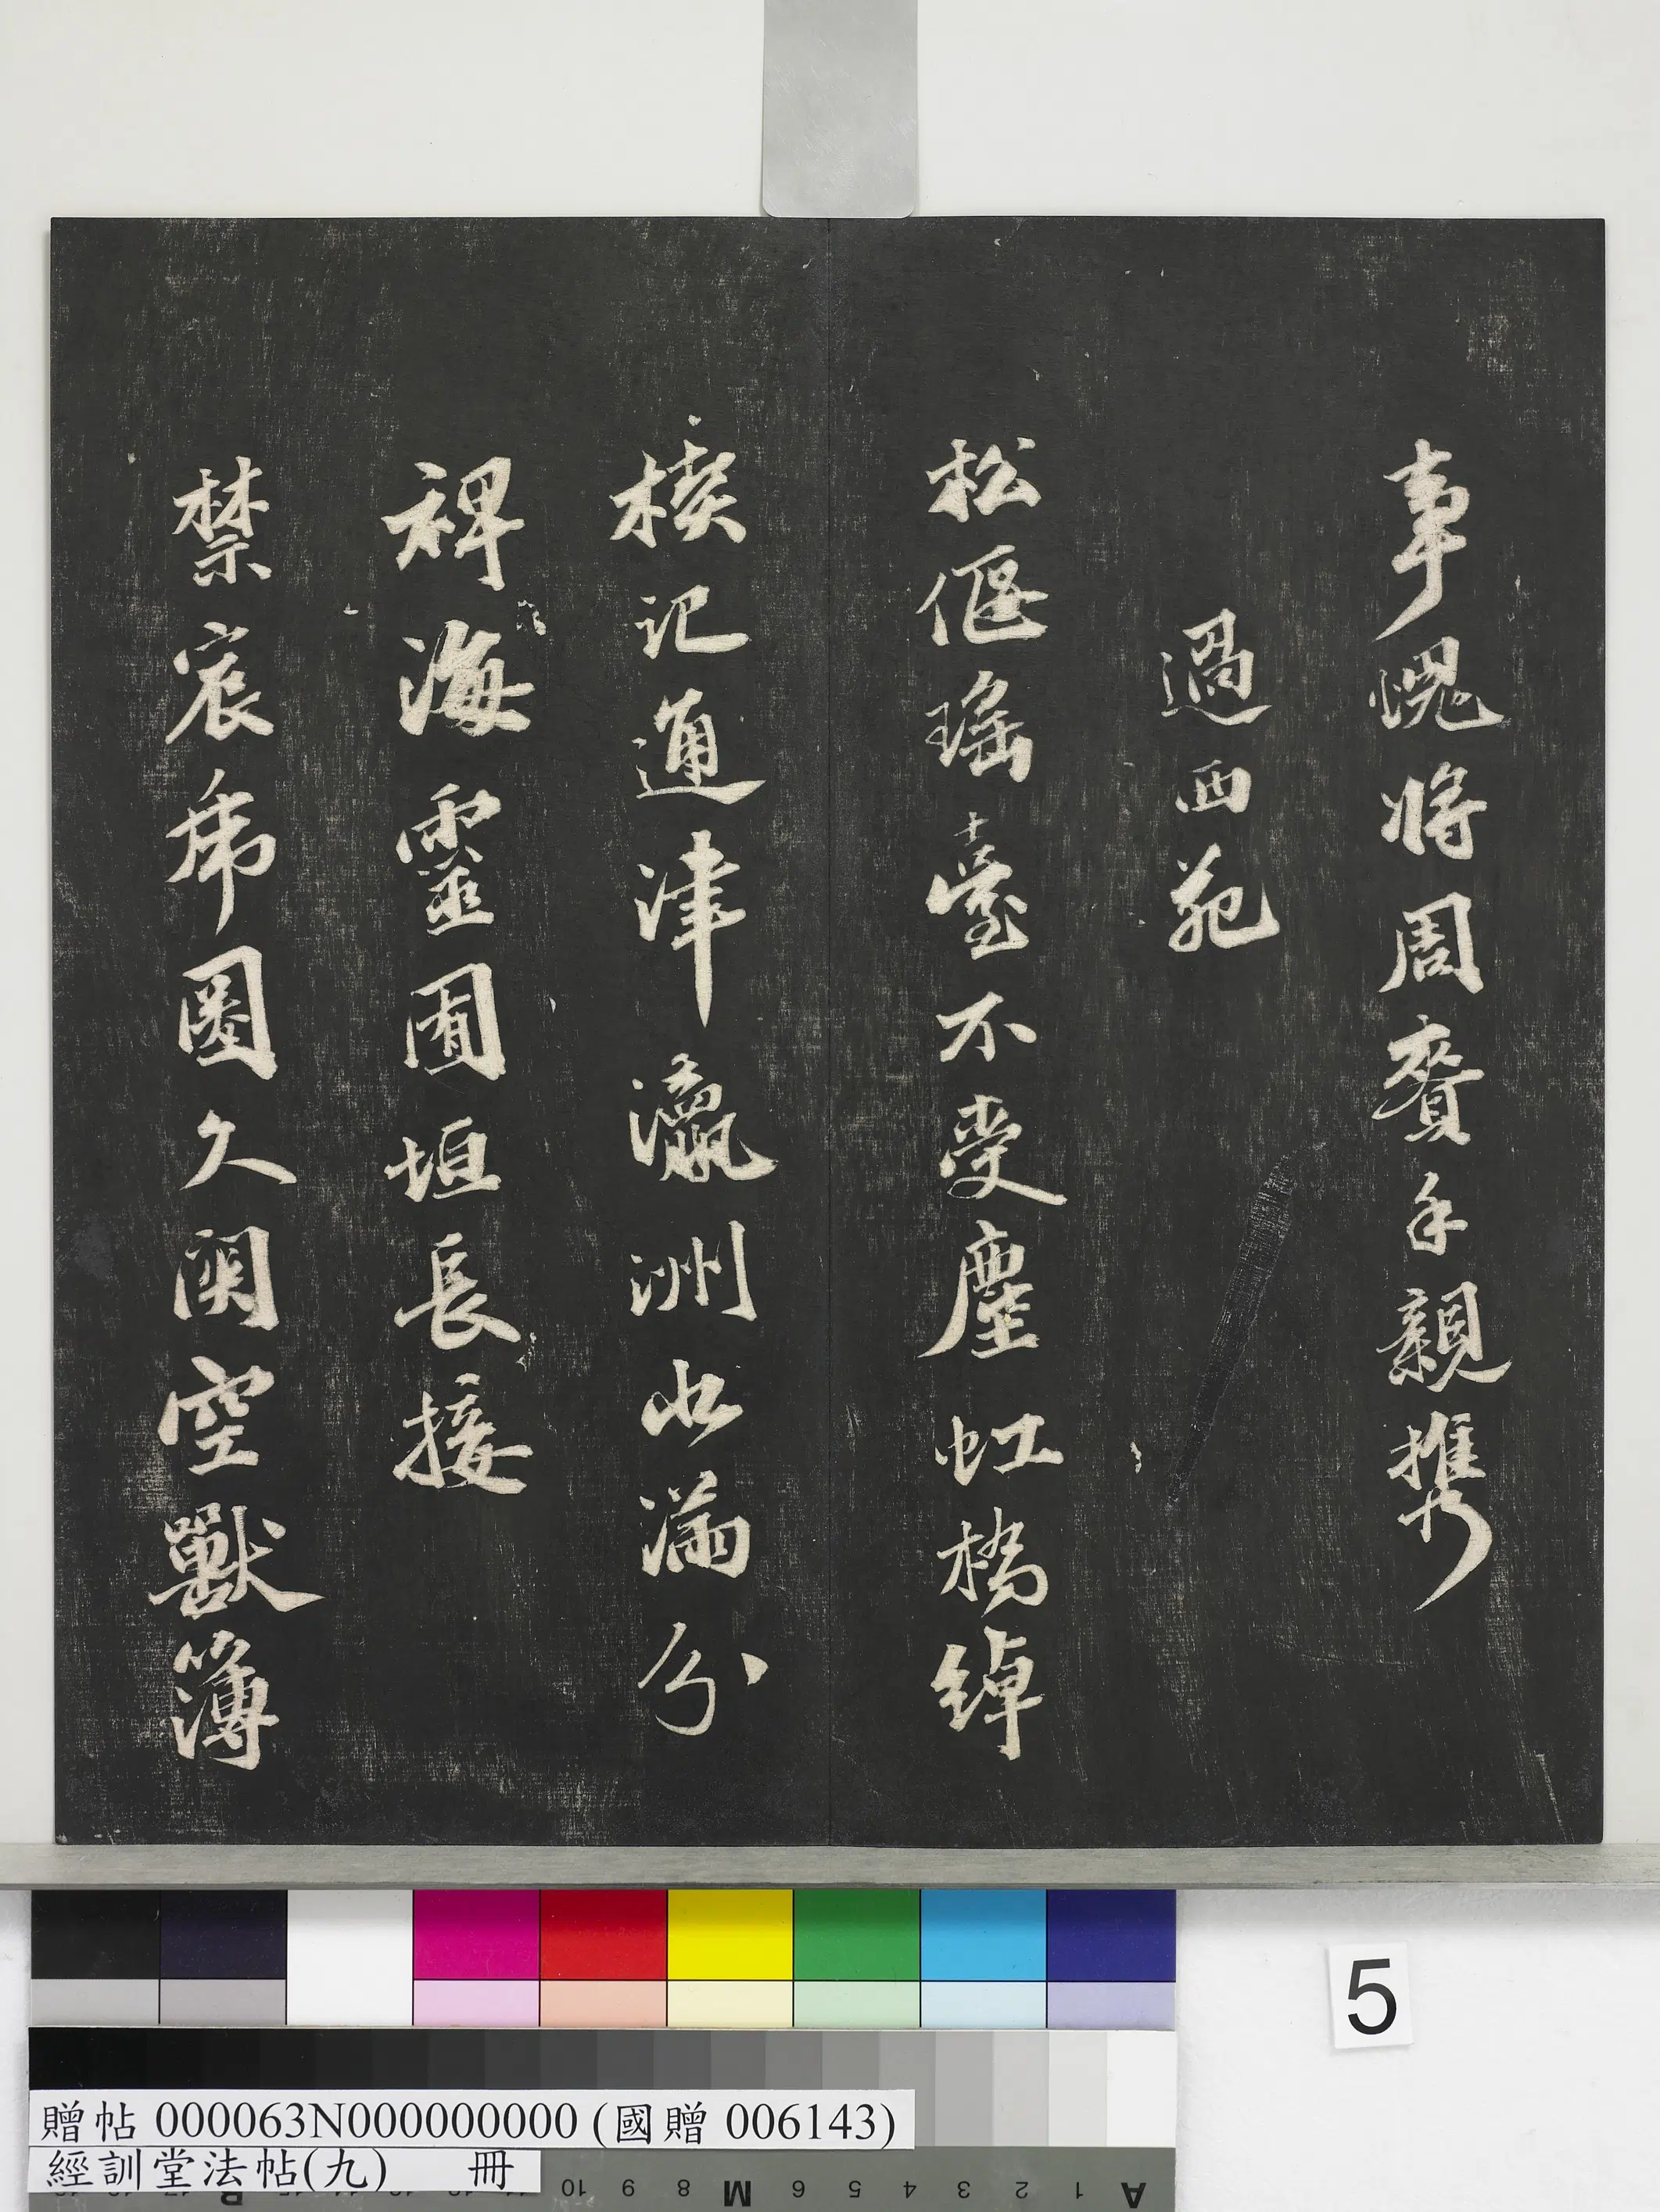 事愧將周賚手親攜
過西苑
松偃瑤臺不受塵虹橋綽
楔記通津瀛洲水滿分
裨海靈囿垣長接
禁宸虎圈久閑空獸簿
5
贈帖 000063N000000000 (國贈 006143)
經訓堂法帖(九) 冊
10 9 8 M 6 5 4 3 2 1 A